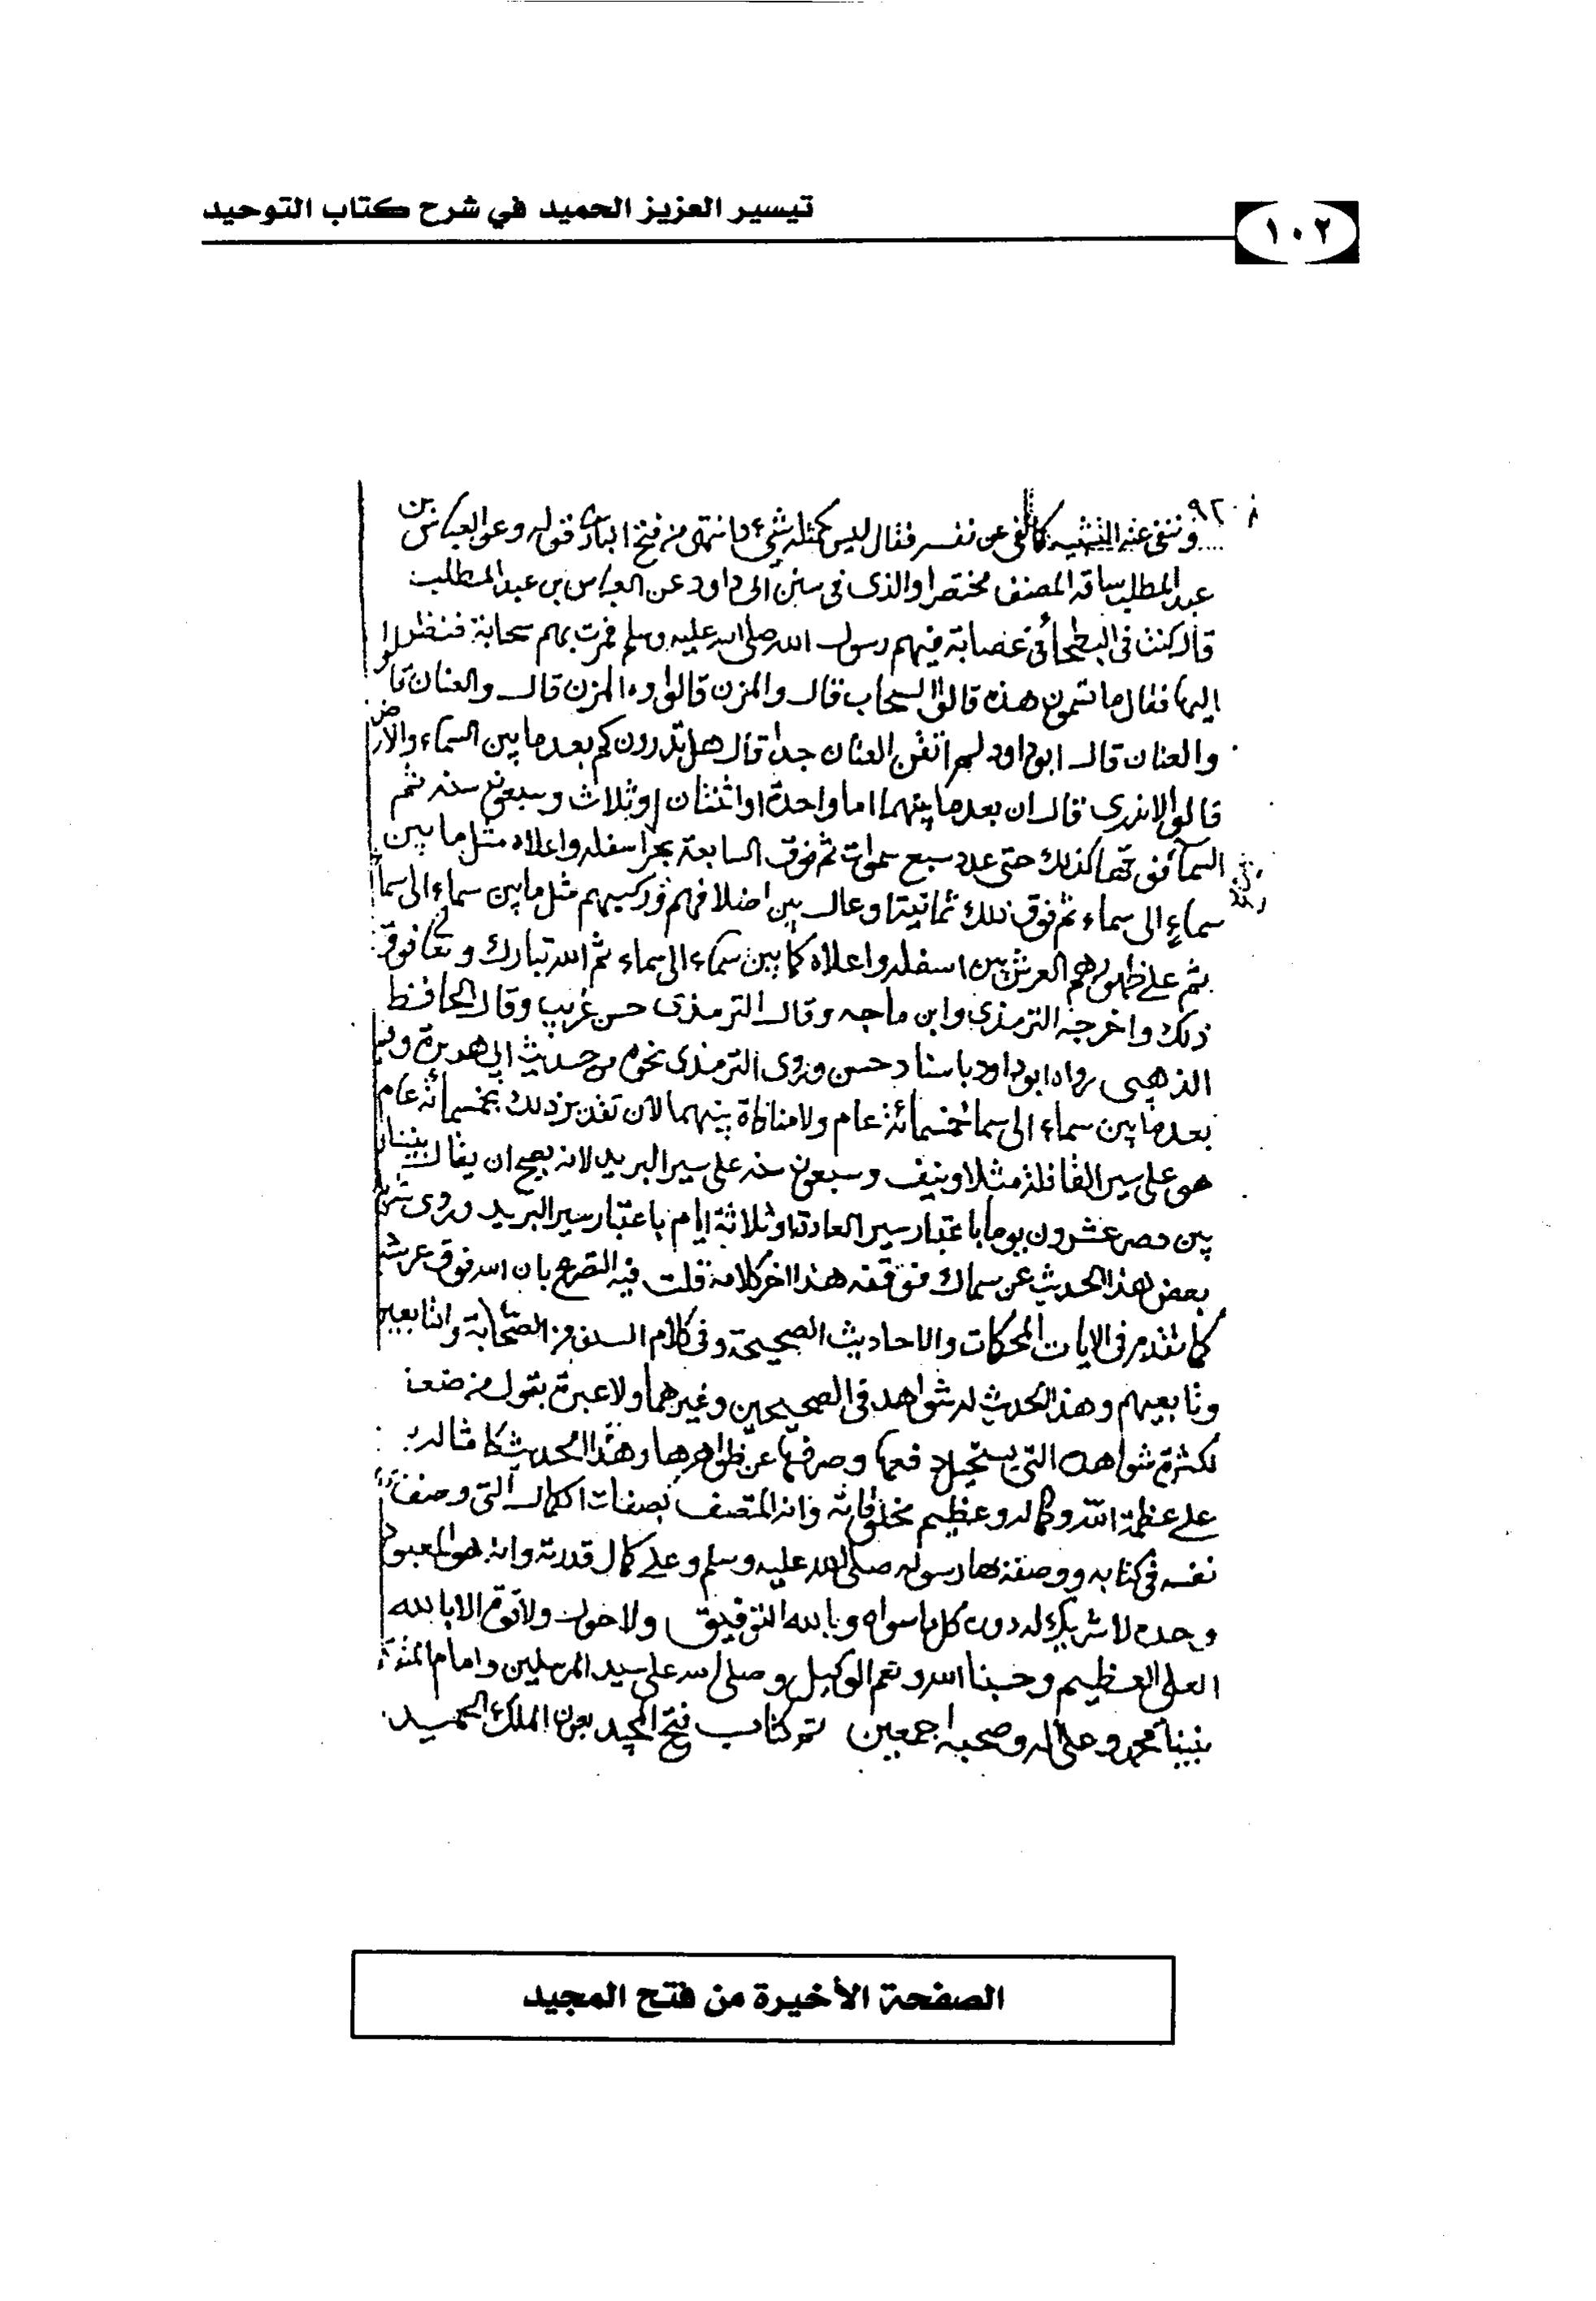 تيسير العزيز الحميد في شرح كتاب التوحيد
١٠٢
وننفي عنه التشبيه كما نفى عن نفسه فقال ليس كمثله شيء انتهى من فتح الباري قوله وعن العباس بن
عبد المطلب ساقه المصنف مختصرا والذى في سنن ابى داود عن العباس بن عبد المطلب
قال كنت في البطحاء في عصابة فيهم رسول الله صلى الله عليه وسلم فمرت بهم سحابة فنظر
اليها فقال ما تسمون هذه قالوا السحاب قال والمزن قالوا والمزن قال والعنان قالوا
والعنان قال ابو داود لم اتقن العنان جدا قال هل تدرون كم بعد ما بين السماء والارض
قالوا لا ندرى قال ان بعد ما بينهما اما واحدة او اثنتان او ثلاث وسبعون سنه ثم
السماء فوقها كذلك حتى عدد سبع سموات ثم فوق السابعة بحر اسفله واعلاه مثل ما بين
سماء الى سماء ثم فوق ذلك ثمانية اوعال بين اضلافهم وركبهم مثل ما بين سماء الى سماء
ثم على ظهورهم العرش بين اسفله واعلاه كما بين سماء الى سماء ثم الله تبارك وتعالى فوق
ذلك واخرجه الترمذى وابن ماجه وقال الترمذى حسن غريب وقال الحافظ
الذهبى رواه ابو داود باسناد حسن وروى الترمذى نحوه من حديث ابى هريرة وفيه
بعد ما بين سماء الى سماء خمسمائة عام ولا منافاة بينهما لان تقدير ذلك بخمسمائة عام
هو على سير القافلة مثلا ونيف وسبعون سنه على سير البريد لانه يصح ان يقال بيننا
وبين مصر عشرون يوما باعتبار سير العادة وثلاثة ايام باعتبار سير البريد وروى شريك
بعض هذا الحديث عن سماك فوقفه هذا اخر كلامه قلت فيه التصريح بان الله فوق عرشه
كما تقدم في الايات المحكمات والاحاديث الصحيحة وفى كلام السلف من الصحابة والتابعين
وتابعيهم وهذا الحديث له شواهد في الصحيحين وغيرهما ولا عبرة بقول من ضعفه
لكثرة شواهده التى يستحيل دفعها وصرفها عن ظواهرها وهذا الحديث كامثاله
على عظمة الله وكماله وعظيم مخلوقاته وانه المتصف بصفات الكمال التى وصف
نفسه في كتابه ووصفه بها رسوله صلى الله عليه وسلم وعلى كمال قدرته وانه هو المعبود
وحده لا شريك له دون كل ما سواه وبالله التوفيق ولا حول ولا قوة الا بالله
العلى العظيم وحسبنا الله ونعم الوكيل وصلى الله على سيد المرسلين وامام المتقين
نبينا محمد وعلى اله وصحبه اجمعين تم كتاب فتح المجيد بعون الملك الحميد
الصفحة الأخيرة من فتح المجيد